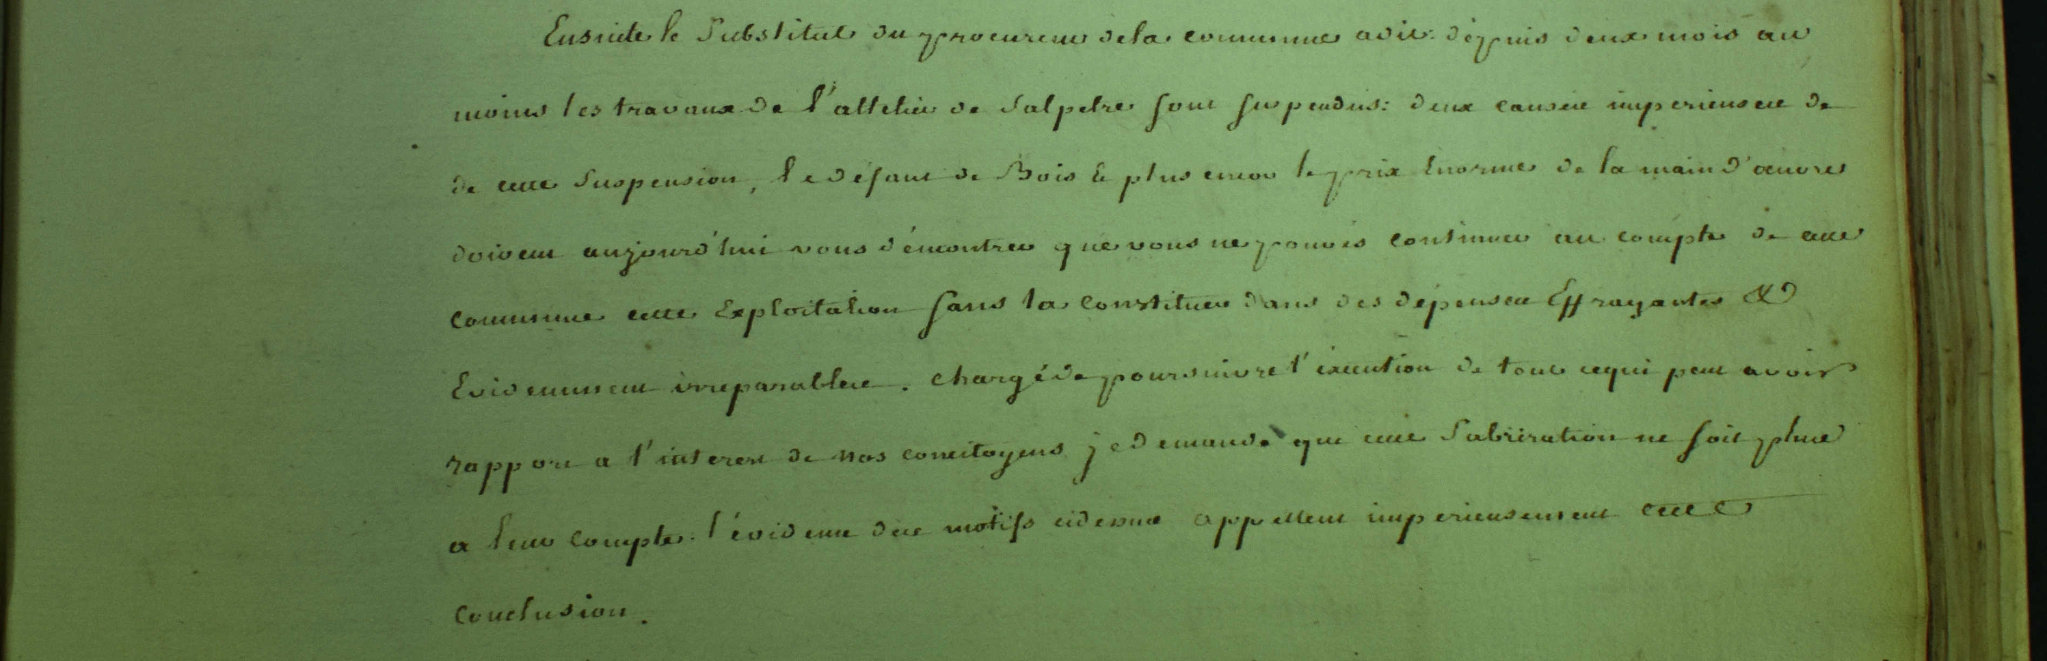 Ensuite le Substitut du procureur dela commune adit: dépuis deux mois au
moins les travaux de l'attelier de Salpetre sont suspendus: deux causes imperieuses de
de cette Suspension, le défaut de Bois & plus encor le prix Enorme de la main d'œuvre
doivent aujourd'hui vous démontrer que vous ne pouvés continuer au compte de cette
commune cette Exploitation sans la constituer dans des dépenses Effrayantes &
Evidemment irreparables. chargé de poursuivre l'éxécution de tout cequi peut avoir
rapport a l'interest de nos concitoyens je demande que cette fabrication ne soit plus
a leur compte: l'évidence des motifs cidessus appellent imperieusement cette
conclusion.